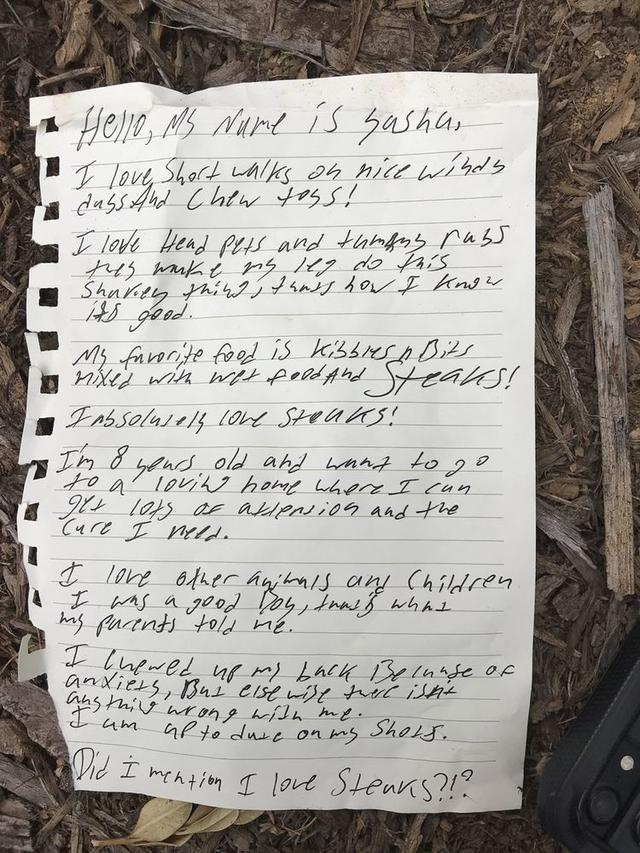 Hello, My Name is Sasha,
I love Short walks on nice windy
days And Chew toys!
I love Head pets and tummy rubs
they make my leg do this
Shakey thing, thats how I know
its good.
My favorite food is Kibbles n Bits
mixed with wet food And Steaks!
I absolutely love Steaks!
I'm 8 years old and want to go
to a lovin home where I can
get lots of attention and the
care I need.
I love other animals and Children
I was a good Boy, that's what
my parents told me.
I chewed up my back Because of
anxiety, But else wise there isnt
anything wrong with me.
I am up to date on my Shots.
Did I mention I love Steaks?!?